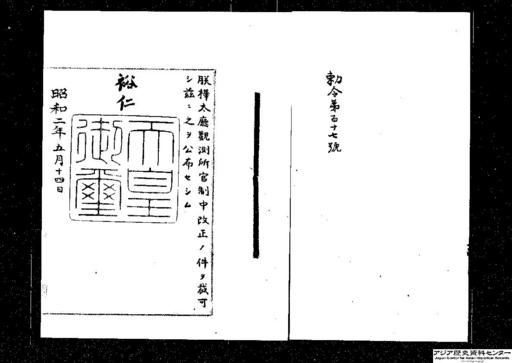 勅令第百十七號
朕樺太廳觀測所官制中改正ノ件ヲ裁可
シ茲ニ之ヲ公布セシム
裕仁
天皇
御璽
昭和二年五月十四日
アジア歴史資料センター
Japan Center for Asian Historical Records